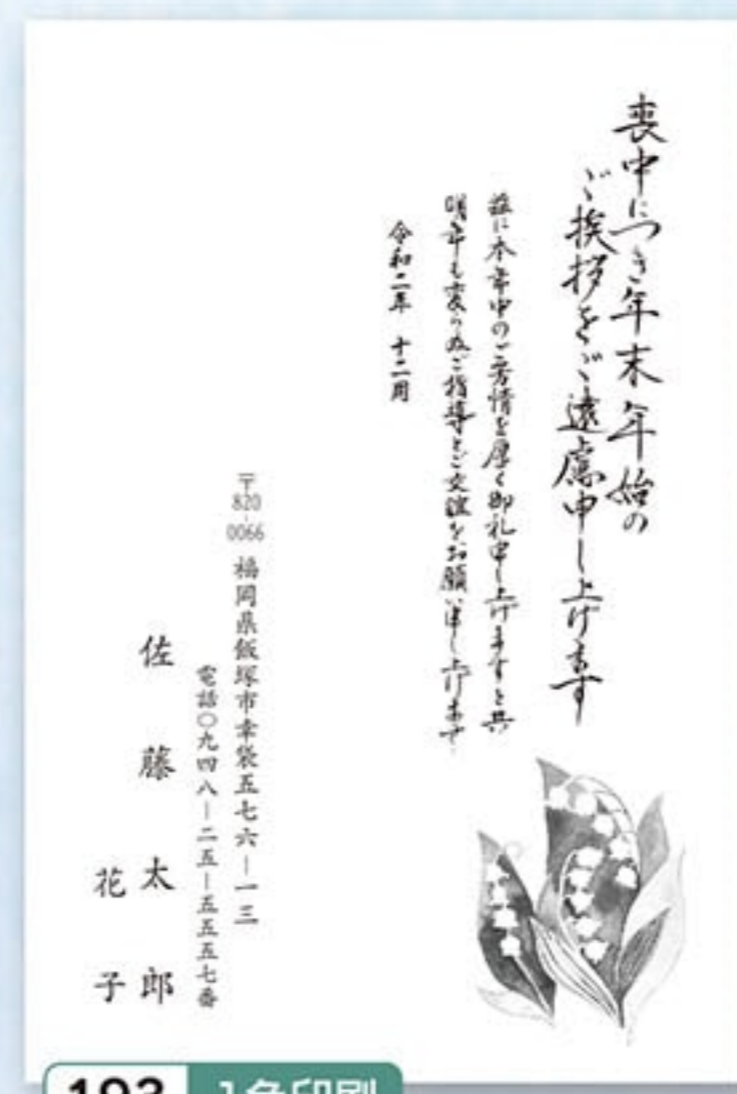 喪中につき年末年始の
ご挨拶をご遠慮申し上げます
茲に本年中のご芳情を厚く御礼申し上げますと共に
明年も変らぬご指導とご交誼をお願い申し上げます
令和二年 十二月
〒820-0066 福岡県飯塚市幸袋五七六―一三
電話〇九四八―二五―五五五七番
佐藤太郎
花子
193 1色印刷